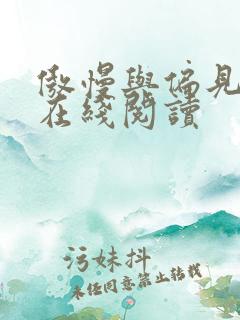 傲慢與偏見
在綫閱讀
污妹抖
未经同意禁止转载